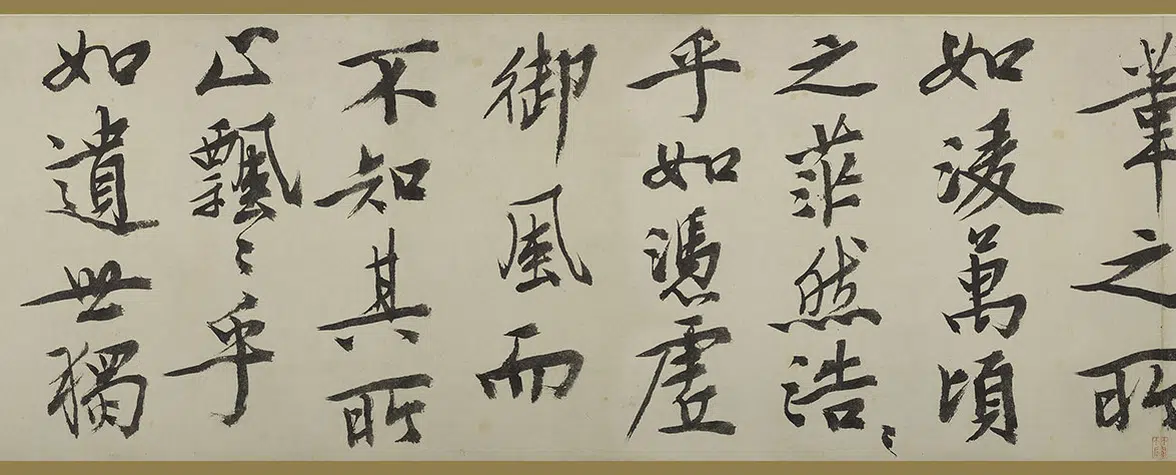 葦之所
如淩萬頃
之茫然浩〻
乎如憑虛
御風而
不知其所
止飄〻乎
如遺世獨